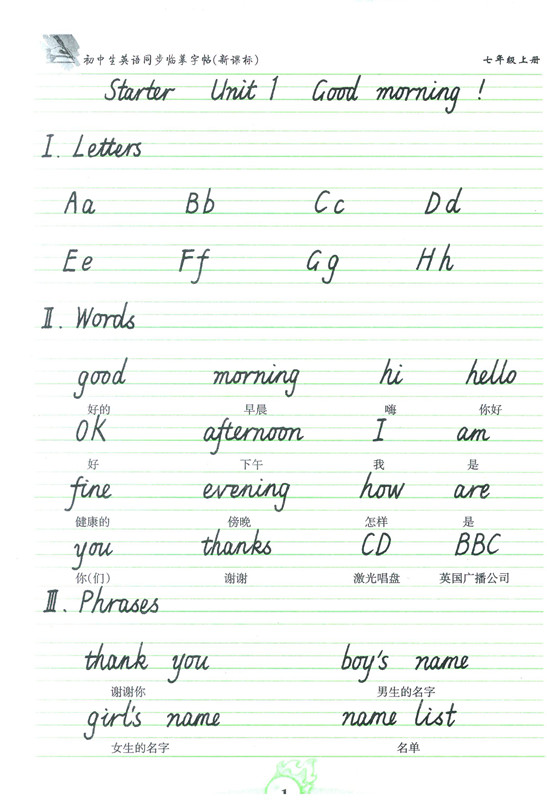 初中生英语同步临摹字帖(新课标) 七年级上册
Starter Unit 1 Good morning !
Ⅰ. Letters
Aa Bb Cc Dd
Ee Ff Gg Hh
Ⅱ. Words
good morning hi hello
好的 早晨 嗨 你好
OK afternoon I am
好 下午 我 是
fine evening how are
健康的 傍晚 怎样 是
you thanks CD BBC
你(们) 谢谢 激光唱盘 英国广播公司
Ⅲ. Phrases
thank you boy's name
谢谢你 男生的名字
girl's name name list
女生的名字 名单
1